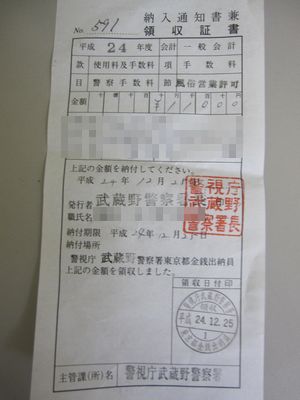 納入通知書兼
No. 591 領収証書
平成 24 年度 会計 一般会計
款 使用料及手数料 項 手数料
目 警察手数料 節 風俗営業許可
金額 ¥11000
上記の金額を納付してください。
平成 24年 12月
発行者 武蔵野警察署
職氏名
警視庁武蔵野警察署長
納付期限 平成 24年12月
納付場所
警視庁 武蔵野 警察署東京都金銭出納員
上記の金額を領収しました。
領収日付印
警視庁武蔵野警察署
領収
平成 24.12.25
1
東京都金銭出納員
主管課(所)名 警視庁武蔵野警察署